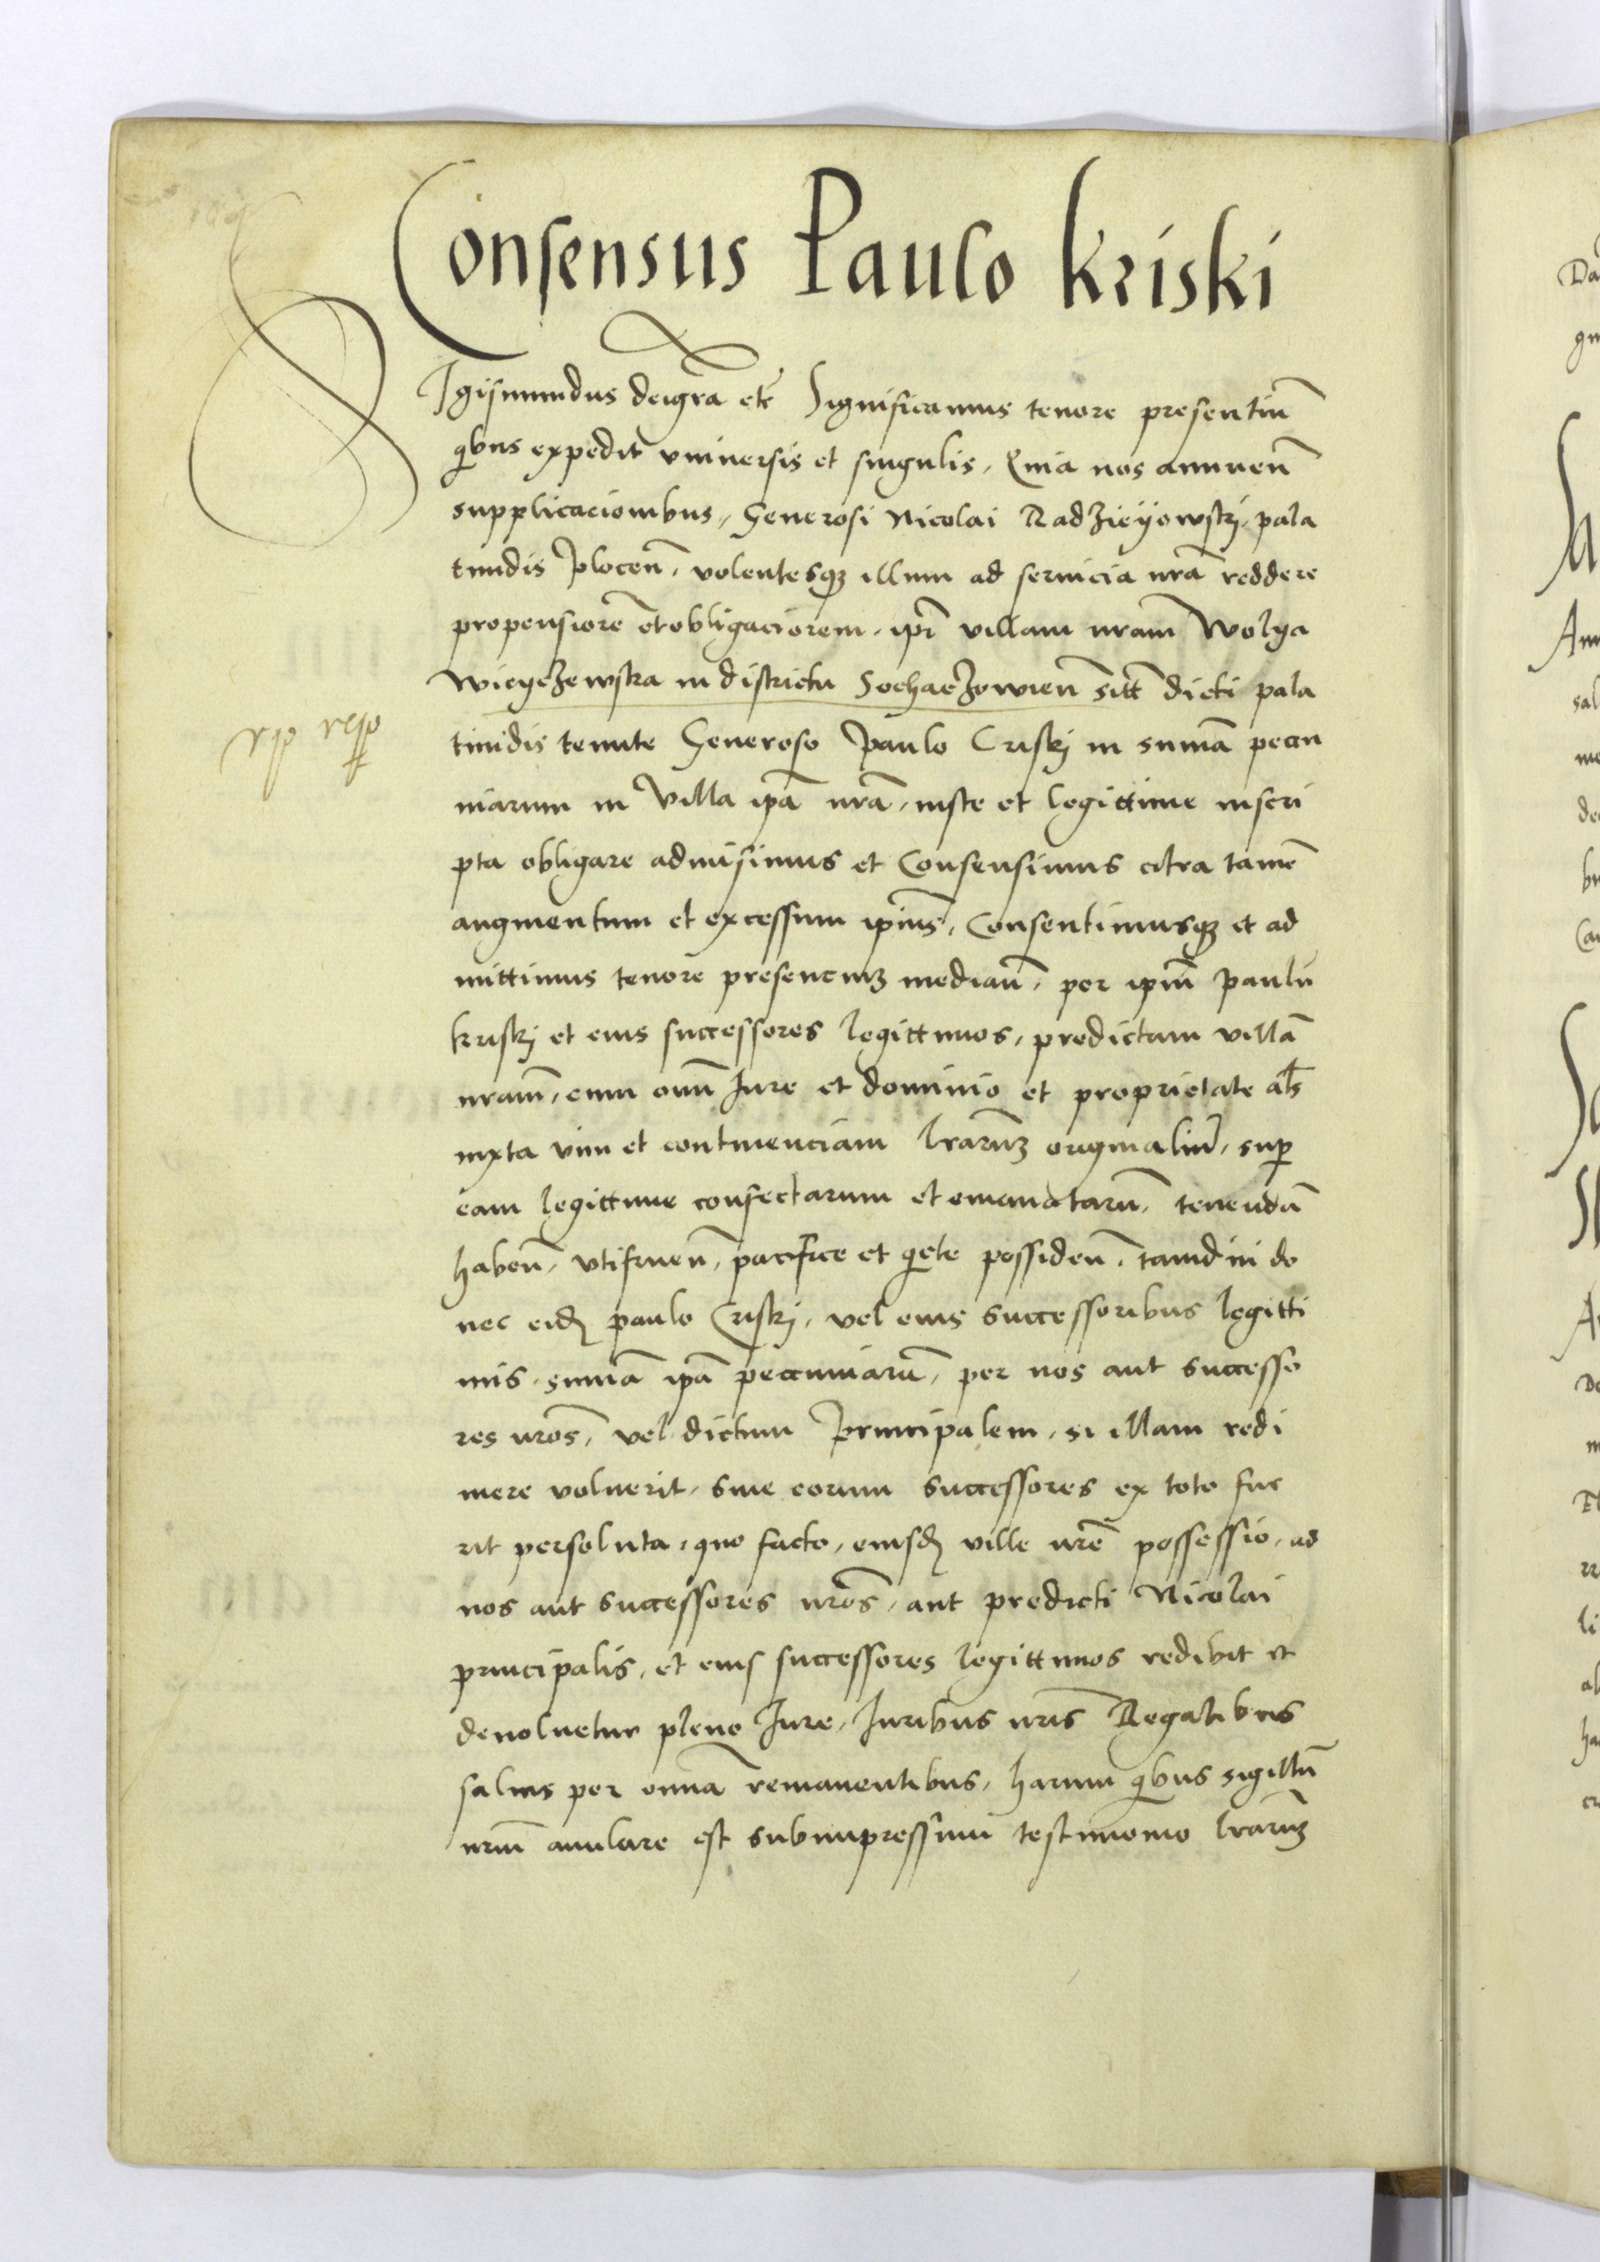 Consensus Paulo Kriski
Sigismundus dei gr̄a etc̄ Significamus tenore presentiū
qͥbus expedit vniuersis et singulis, Quia nos annuen̄
supplicacionibus, Generosi Nicolai Radzieyowskj, pala
tinidis plocen̄, volentesqȝ illum ad seruicia nr̄a reddere
propensiorē et obligaciorem, ip̄i villam nram̄ Wolya
Wieyczewska in districtu Sochaczowien̄ sitt̄ dicti pala
tinidis tenute Generoso Paulo Criskj in sum̄a pecu
niarum in villa ip̄a nr̄a, iuste et legittime inscri
pta obligare admisimus et Consensimus citra tamē
augmentum et excessum ipius̄, Consentimusqȝ et ad
mittimus tenore presenciuȝ median̄, per ipm̄ Paulū
kriskj et eius successores legittimos, predictam villā
nram̄, cum omī Iure et dominio et proprietate al̄s
iuxta vim et continenciam lraruȝ originaliū, sup
eam legittime confectarum et emanatarū, tenendā
haben̄, vtifruen̄, pacifice et qͥete possiden̄, tamdiu do
nec eidꝫ paulo Criskj, vel eius successoribus legitti
mis, sum̄a ip̄a pecuniarū, per nos aut successo
res nros̄, vel dictum Principalem, si illam redi
mere voluerit, siue eorum successores ex toto fue
rit persoluta, quo facto, eiusdꝫ ville nrē possessio, ad
nos aut successores nrōs, aut predicti Nicolai
principalis, et eius successores legittimos redibit et
deuoluetur pleno Iure, Iuribus nris̄ Regalibus
saluis per omīa remanentibus, harum qͥbus sigillū
nrm̄ anulare est subimpressum testimonio lraruȝ